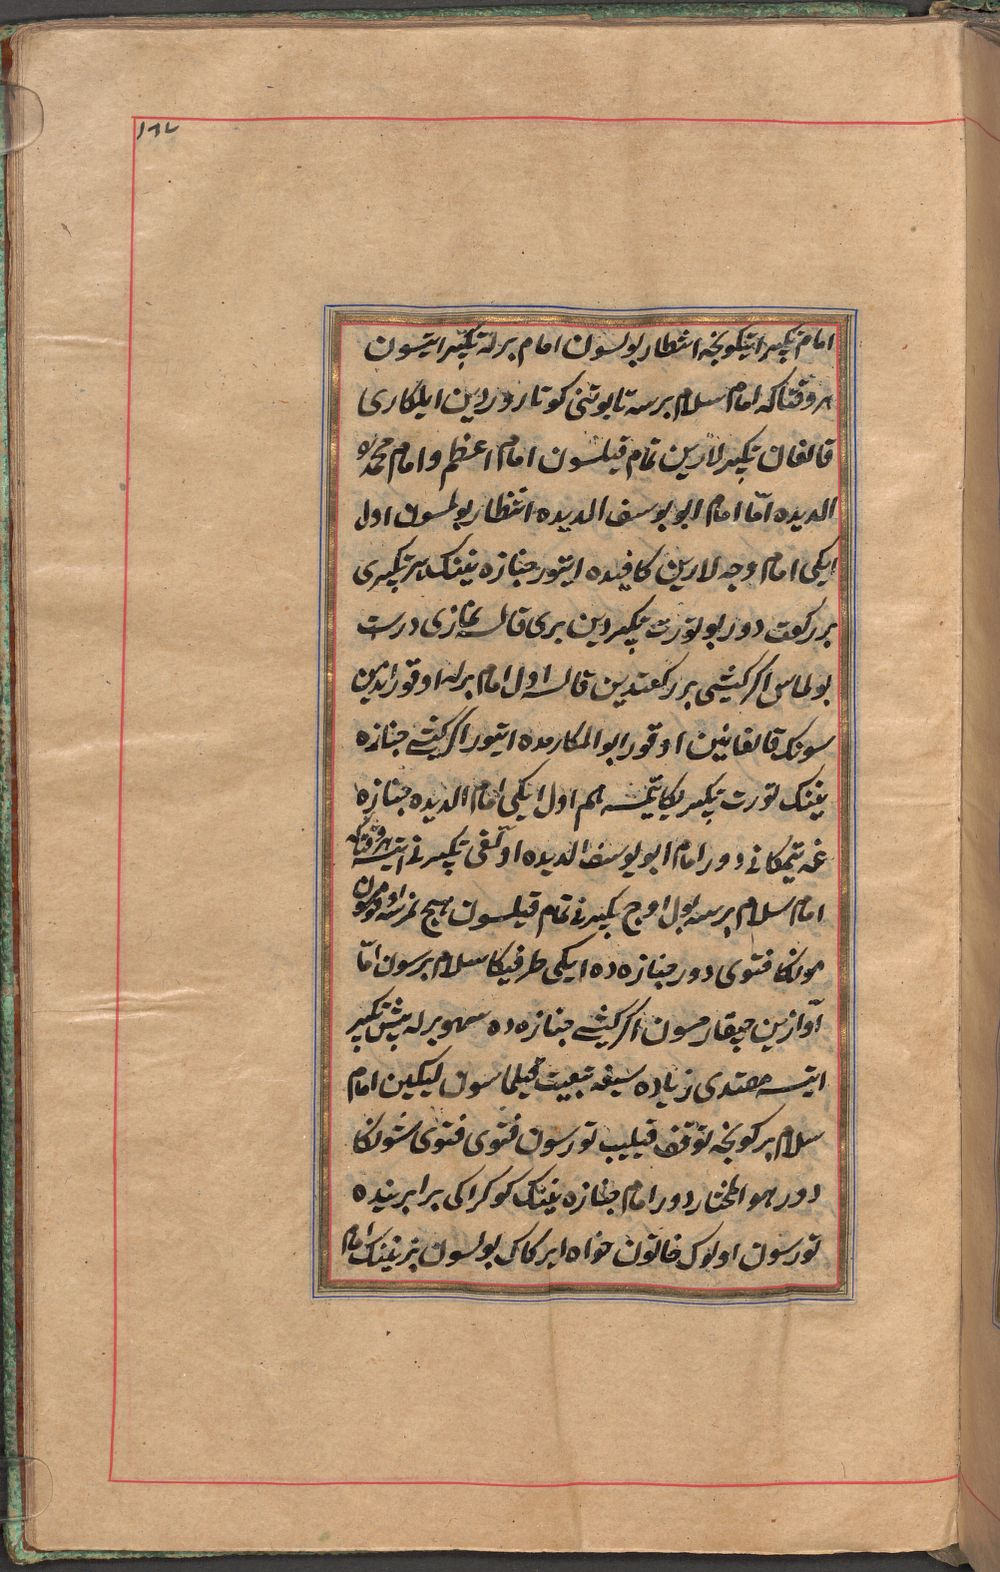 ۱۶۷
امام تکبیر ایتکونچه انتظار بولسون امام برله تکبیر ایتسون
هر وقتاکه امام سلام برسه تابوتنی کوتارور دین ایلکاری
قالغان تکبیرلارین تمام قیلسون امام اعظم و امام محمد
الدیده امّا امام ابو یوسف الدیده انتظار بولمسون اول
ایکی امام وجه لارین کافیده ایتور جنازه نینک هر تکبیری
بر رکعت دور بو تورت تکبیردین بری قالسه نمازی درست
بولماس اکر کیشی بر رکعتدین قالسه اول امام برله اوقور اندین
سونک قالغانین اوقور ابو المکارمده ایتور اکر کیشی جنازه
نینک تورت تکبیریکا یتمسه هم اول ایکی امام الدیده جنازه
غه یتمکانی دور امام ابو یوسف الدیده اولغی تکبیرنی ایتسه هر وقتاکه
امام سلام برسه بول اوچ تکبیرنی تمام قیلسون هیچ نرسه اوقومسون
مونکا فتوی دور جنازه ده ایکی طرفیکا سلام برسون امّا
آوازین چیقارمسون اکر کیشی جنازه ده سهو برله بیش تکبیر
ایتسه مقتدی زیاده سیغه تبعیت قیلماسون لیکین امام
سلام برکونچه توقف قیلیب تورسون فتوی فتوی شونکا
دور هو المختار دور امام جنازه نینک کوکراکی برابرینده
تورسون اولوک خاتون خواه ایرکاک بولسون بزنینک امام